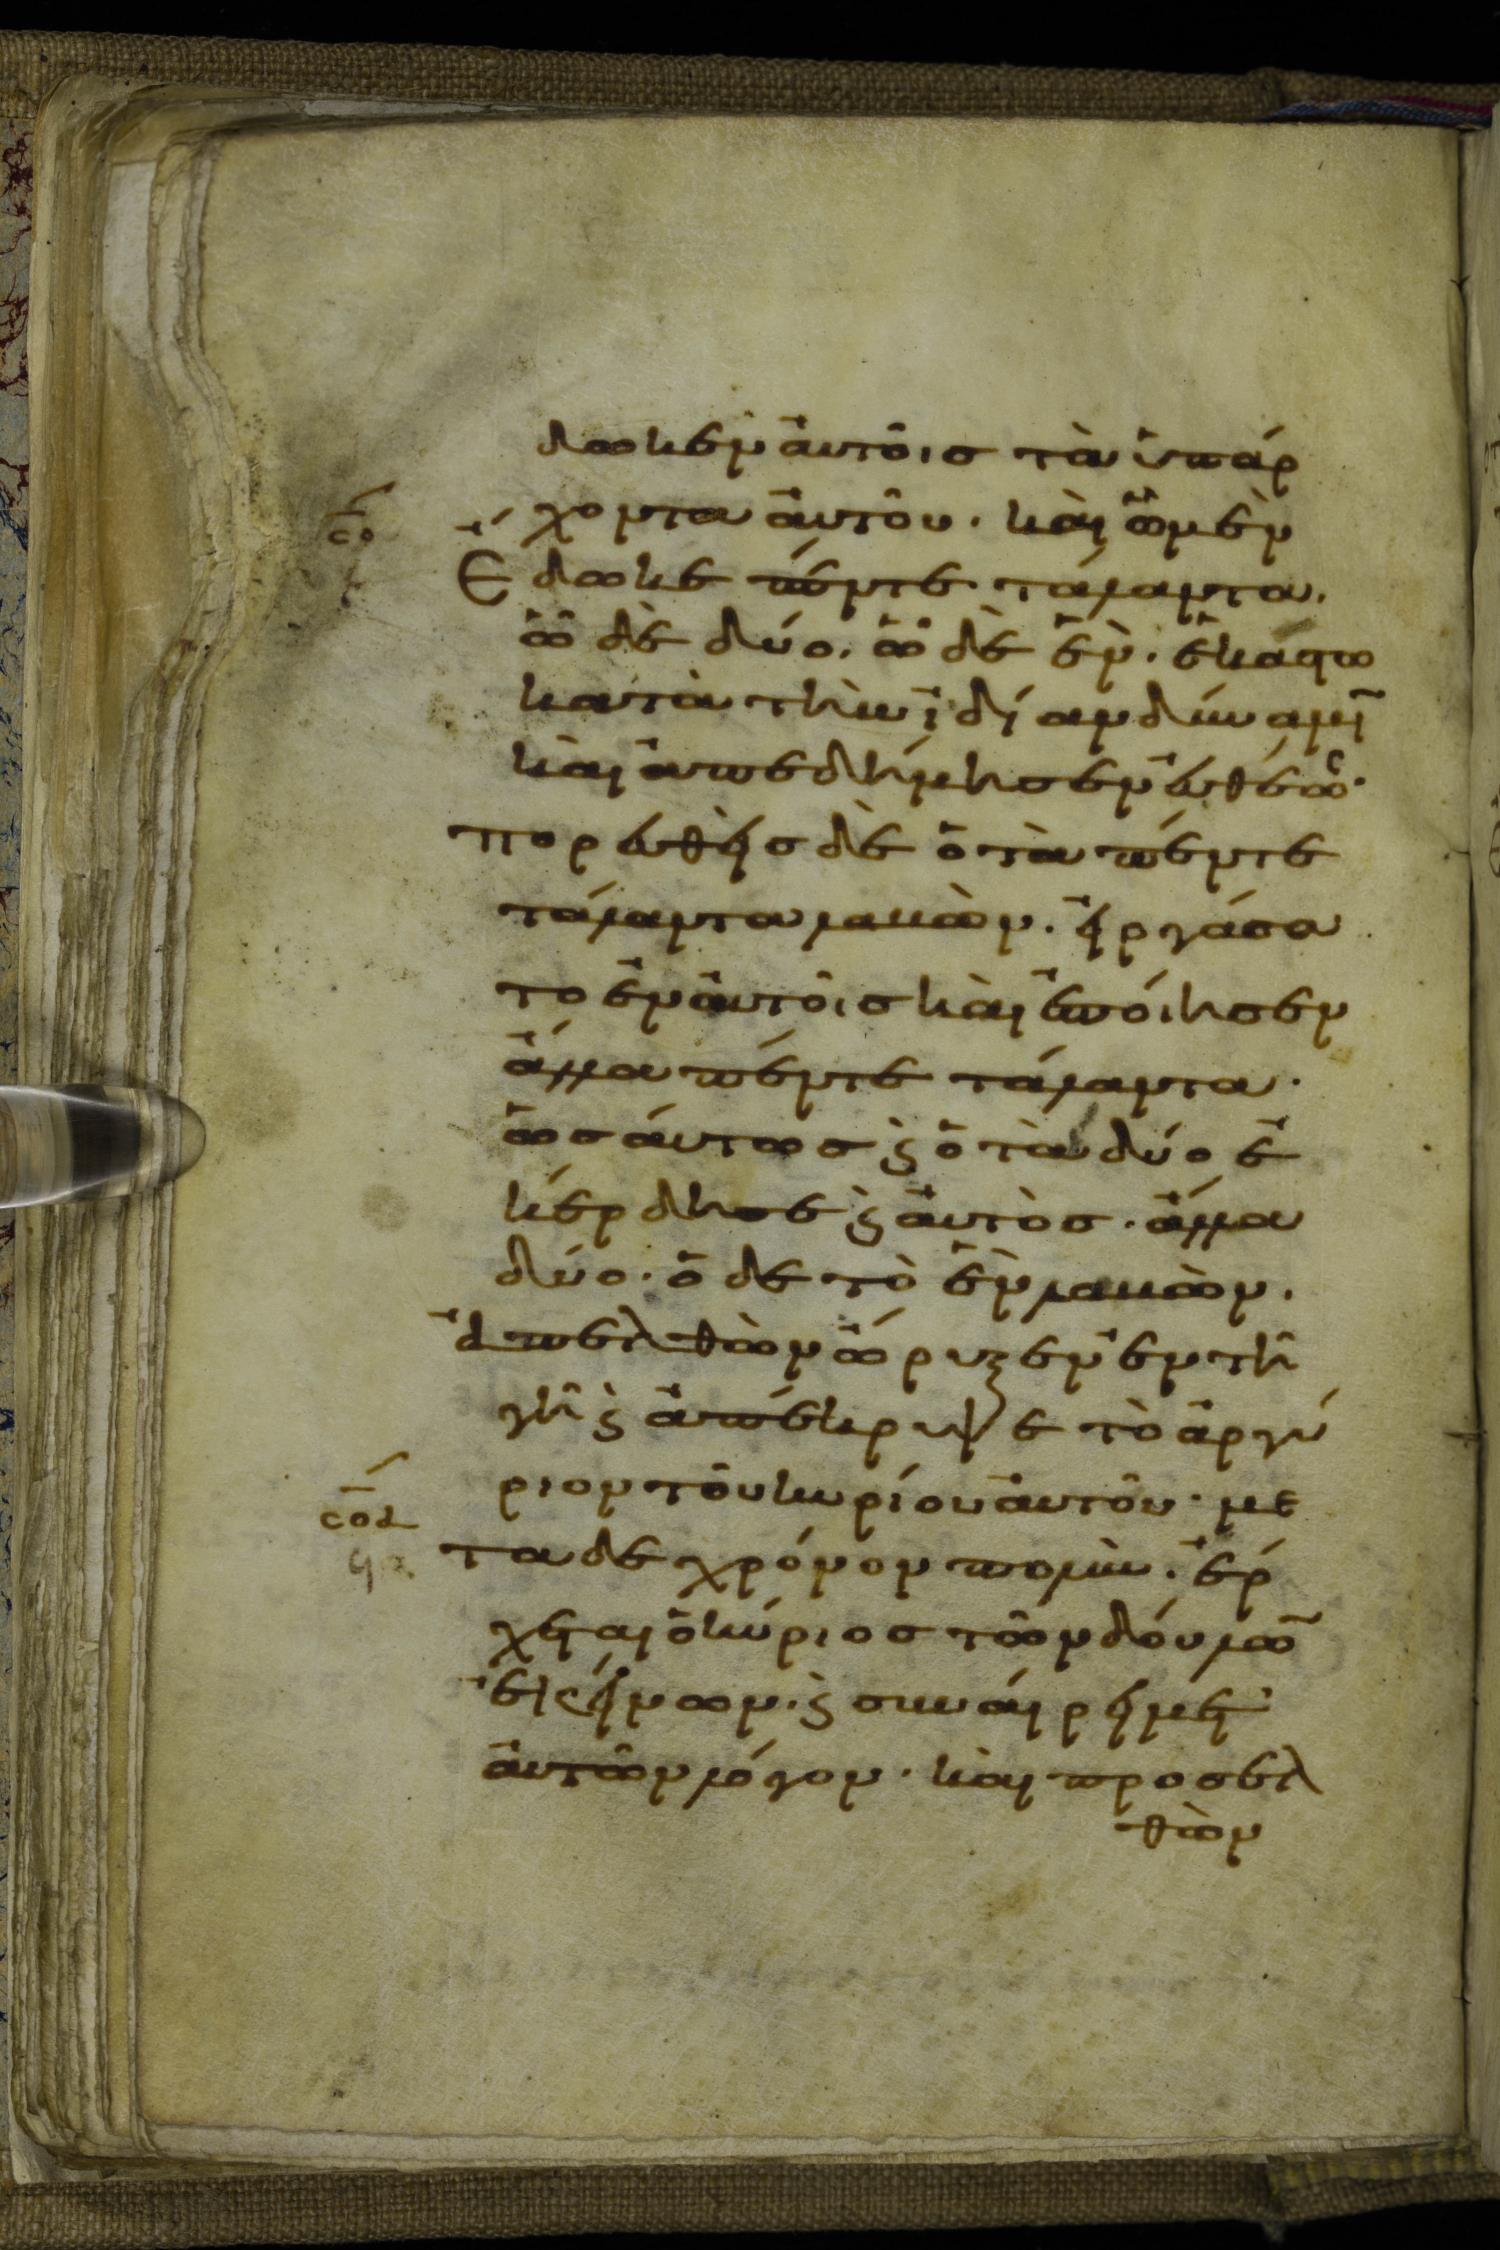 δωκεν ἀυτοῖς τὰ ὑπάρ
χοντα ἀυτοῦ. καὶ ὧ μὲν
σο
Ἔδωκε πέντε τάλαντα.
ὧ δὲ δύο. ὧ δὲ ἕν. ἑκάστω
κατὰ τὴν ἰδίαν δύναμῑ
καὶ ἀπεδήμησεν ἐυθέως.
πορευθεὶς δὲ ὁ τὰ πέντε
τάλαντα λαβὼν. ἐιργάσα
το ἐν ἀυτοῖς καὶ ἐποίησεν
ἄλλα πέντε τάλαντα.
ὡσάυτως ϗ ὁ τὰ δύο ἐ
κέρδησε ϗ ἀυτὸς. ἄλλα
δύο. ὁ δε τὸ ἓν λαβὼν.
ἀπελθὼν ὤρυξεν ἐν τῆ
γῆ ϗ ἀπέκρυψε τὸ ἀργύ
ριον τοῦ κυρίου ἀυτοῦ. με
σοα
τα δε χρόνον πολὺν. ἔρ
χεται ὁ κύριος τῶν δούλω̄
ἐκείνων. ϗ συναίρει μετ'
ἀυτῶν λόγον. καὶ προσελ
θὼν